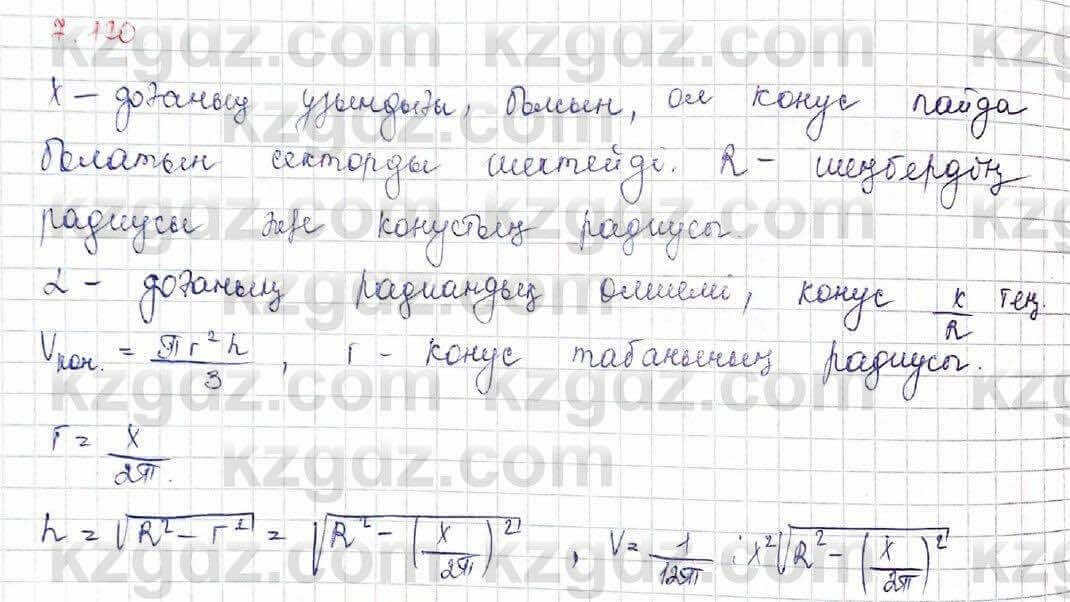 7.120
x – доғаның ұзындығы, болсын, ол конус пайда
болатын секторды шектейді. R – шеңбердің
радиусы және конустың радиусы.
α – доғаның радиандық өлшемі, конус x/R тең.
Vкон. = πr²h/3, r – конус табанының радиусы.
r = x/2π.
h = √(R² – r²) = √(R² – (x/2π)²), V = 1/12π : x²√(R² – (x/2π)²)